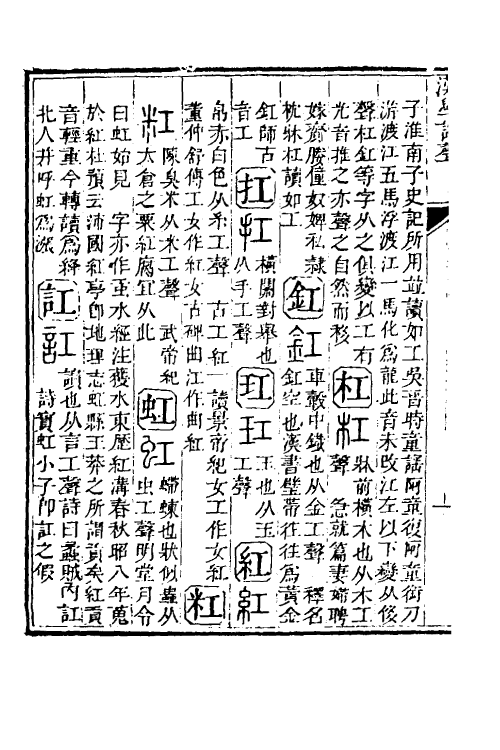 漢學諧聲
子淮南子史記所用並讀如工吳晉時童謠阿童復阿童銜刀
游渡江五馬浮渡江一馬化為龍此音未改江左以下變从佼
聲杠釭等字从之俱變以工有
光音推之亦聲之自然而移 杠 牀前橫木也从木工
聲 急就篇妻婦聘
嫁齎媵僮奴婢私隸
枕牀杠讀如工 釭 車轂中鐵也从金工聲 釋名
釭空也漢書璧帶往往為黃金
釭師古
音工 扛 橫關對舉也
从手工聲 玒 玉也从玉
工聲 紅
帛赤白色从糸工聲 古工紅一讀景帝紀女工作女紅
董仲舒傳工女作紅女古碑曲江作曲紅 粠
陳臭米从米工聲 武帝紀
太倉之粟紅腐宜从此 虹 螮蝀也狀似蟲从
虫工聲明堂月令
曰虹始見 字亦作䖝水經注獲水東歷紅溝春秋昭八年蒐
於紅杜預云沛國紅亭卽地理志虹縣王莽之所謂貢矣紅貢
音輕重今轉讀為絳
北人幷呼虹為絳 訌 讀也从言工聲詩曰蟊賊內訌
詩實虹小子卽訌之假